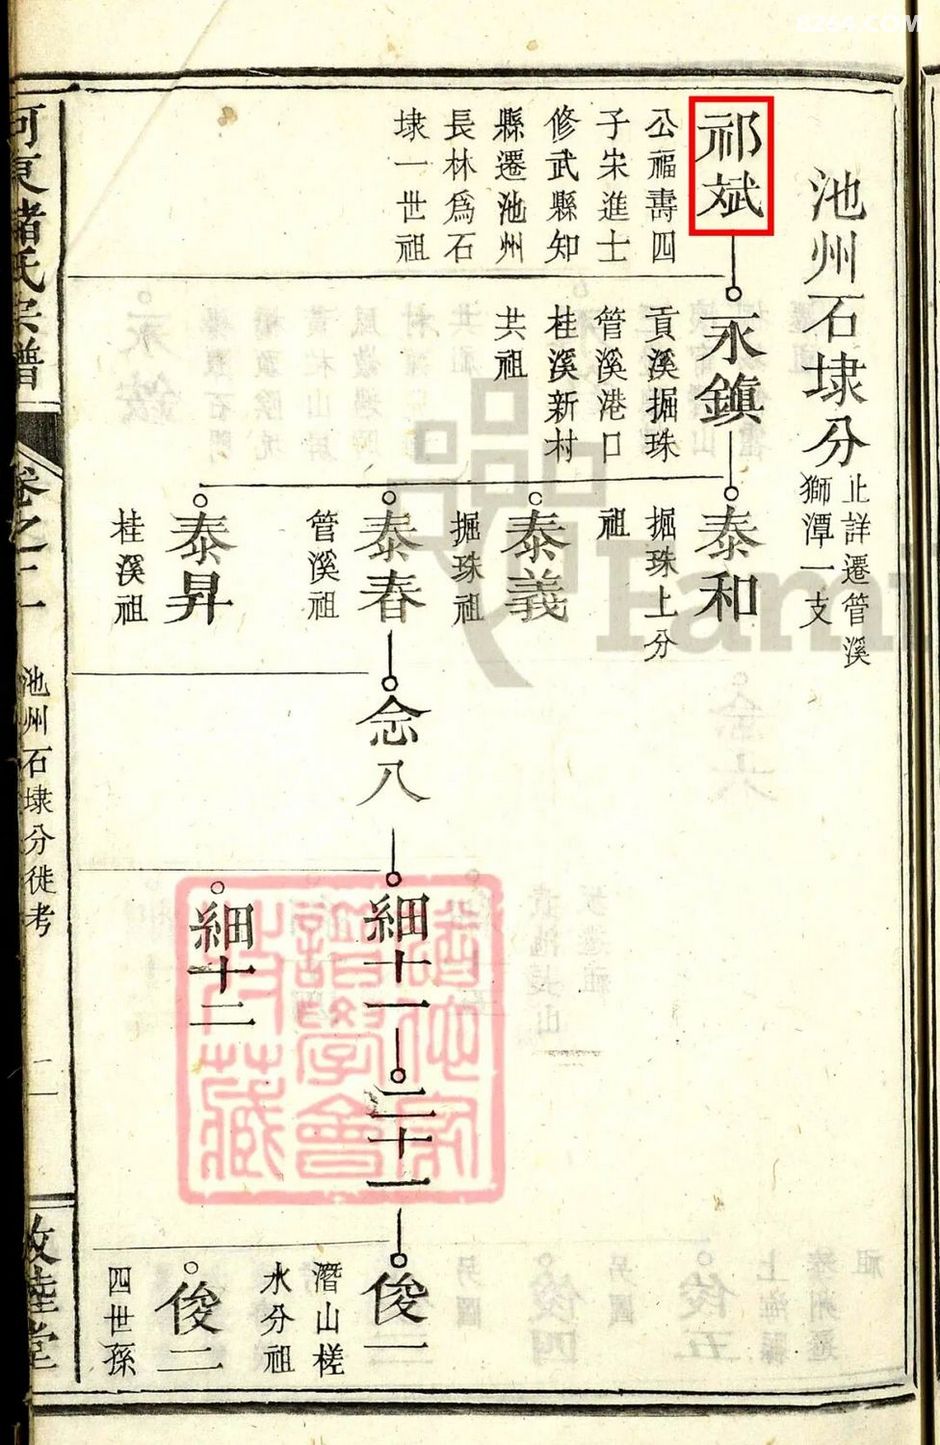 8264.COM
池州石埭分
止詳遷管溪
獅潭一支
祁斌
公福壽四
子宋進士
修武縣知
縣遷池州
長林爲石
埭一世祖
永鎮
貢溪掘珠
管溪港口
桂溪新村
共祖
泰和
掘珠上分
祖
泰義
掘珠祖
泰春
管溪祖
泰昇
桂溪祖
念八
細十一
細十二
二十一
俊一
潛山槎
水分祖
俊二
四世孫
宗譜
卷之二
池州石埭分徙考
二
敦睦堂